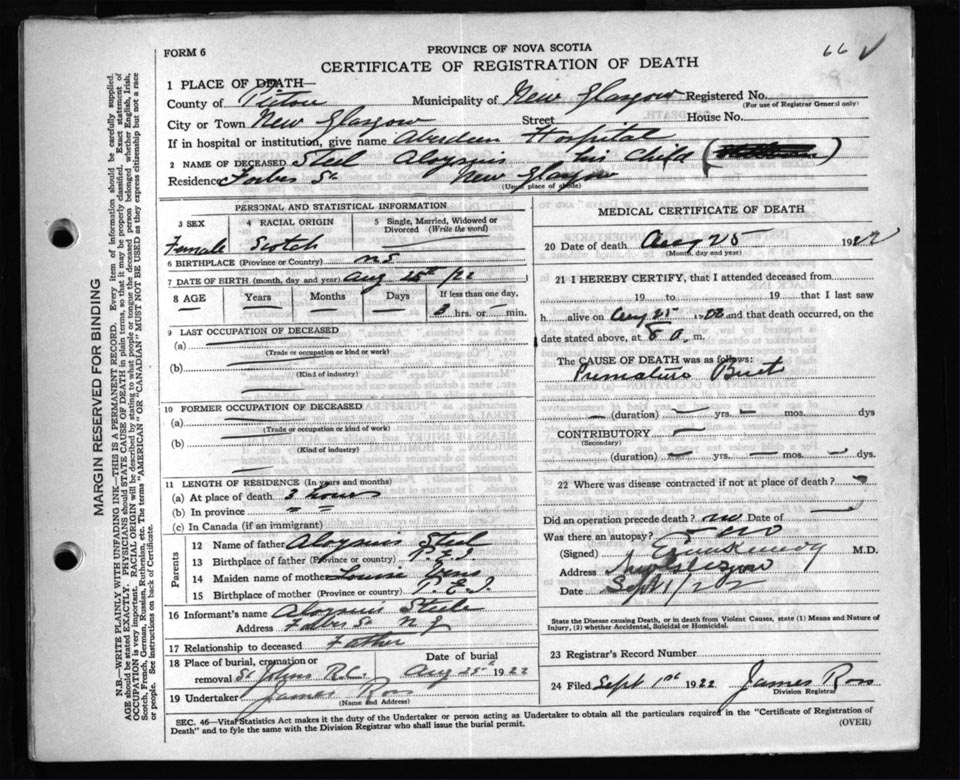 66 ✓
FORM 6
PROVINCE OF NOVA SCOTIA
CERTIFICATE OF REGISTRATION OF DEATH
1 PLACE OF DEATH—
County of Pictou Municipality of New Glasgow Registered No.
(For use of Registrar General only)
City or Town New Glasgow Street House No.
If in hospital or institution, give name Aberdeen Hospital
2 NAME OF DECEASED Steel Aloysius his Child
Residence Forbes St New Glasgow
(Usual place of abode)
PERSONAL AND STATISTICAL INFORMATION
3 SEX 4 RACIAL ORIGIN 5 Single, Married, Widowed or Divorced (Write the word)
Female Scotch
6 BIRTHPLACE (Province or Country) N S
7 DATE OF BIRTH (month, day and year) Aug 25th /22
8 AGE Years Months Days If less than one day,
3 hrs. or — min.
9 LAST OCCUPATION OF DECEASED
(a)
(Trade or occupation or kind or work)
(b)
(Kind of industry)
10 FORMER OCCUPATION OF DECEASED
(a)
(Trade or occupation or kind of work)
(b)
(Kind of industry)
11 LENGTH OF RESIDENCE (In years and months)
(a) At place of death 3 hours
(b) In province " "
(c) In Canada (if an immigrant)
Parents
12 Name of father Aloysius Steel
13 Birthplace of father (Province or country) P.E.I
14 Maiden name of mother Louise
15 Birthplace of mother (Province or country) P.E.I.
16 Informant's name Aloysius Steele
Address Forbes St N G
17 Relationship to deceased Father
18 Place of burial, cremation or removal St Johns R.C. Date of burial Aug 25th 1922
19 Undertaker James Ross
(Name and Address)
MEDICAL CERTIFICATE OF DEATH
20 Date of death Aug 25 1922
(Month, day and year)
21 I HEREBY CERTIFY, that I attended deceased from
19 to 19 that I last saw
h alive on Aug 25 and that death occurred, on the
date stated above, at 8 a. m.
The CAUSE OF DEATH was as follows:
Premature Birth
— (duration) — yrs — mos. dys
CONTRIBUTORY —
(Secondary)
(duration) — yrs. — mos. — dys.
22 Where was disease contracted if not at place of death?
Did an operation precede death? no Date of
Was there an autopsy? no
(Signed) M.D.
Address New Glasgow
Date Sept 1/22
State the Disease causing Death, or in death from Violent Causes, state (1) Means and Nature of Injury, (2) whether Accidental, Suicidal or Homicidal.
23 Registrar's Record Number
24 Filed Sept 1st 1922 James Ross
Division Registrar
SEC. 46—Vital Statistics Act makes it the duty of the Undertaker or person acting as Undertaker to obtain all the particulars required in the "Certificate of Registration of
Death" and to fyle the same with the Division Registrar who shall issue the burial permit.
(OVER)
MARGIN RESERVED FOR BINDING
N.B.—WRITE PLAINLY WITH UNFADING INK—THIS IS A PERMANENT RECORD. Every item of information should be carefully supplied.
AGE should be stated EXACTLY. PHYSICIANS should STATE CAUSE OF DEATH in plain terms, so that it may be properly classified. Exact statement of
OCCUPATION is very important. RACIAL ORIGIN will be described by stating to what people or tongue the deceased person belonged whether English, Irish,
Scotch, French, German, Russian, Ruthenian, etc. The terms "AMERICAN" OR "CANADIAN" MUST NOT BE USED as they express citizenship but not a race
or people. See instructions on back of Certificate.